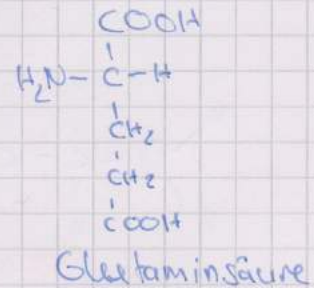 COOH
H₂N-C-H
CH₂
CH₂
COOH
Glutaminsäure